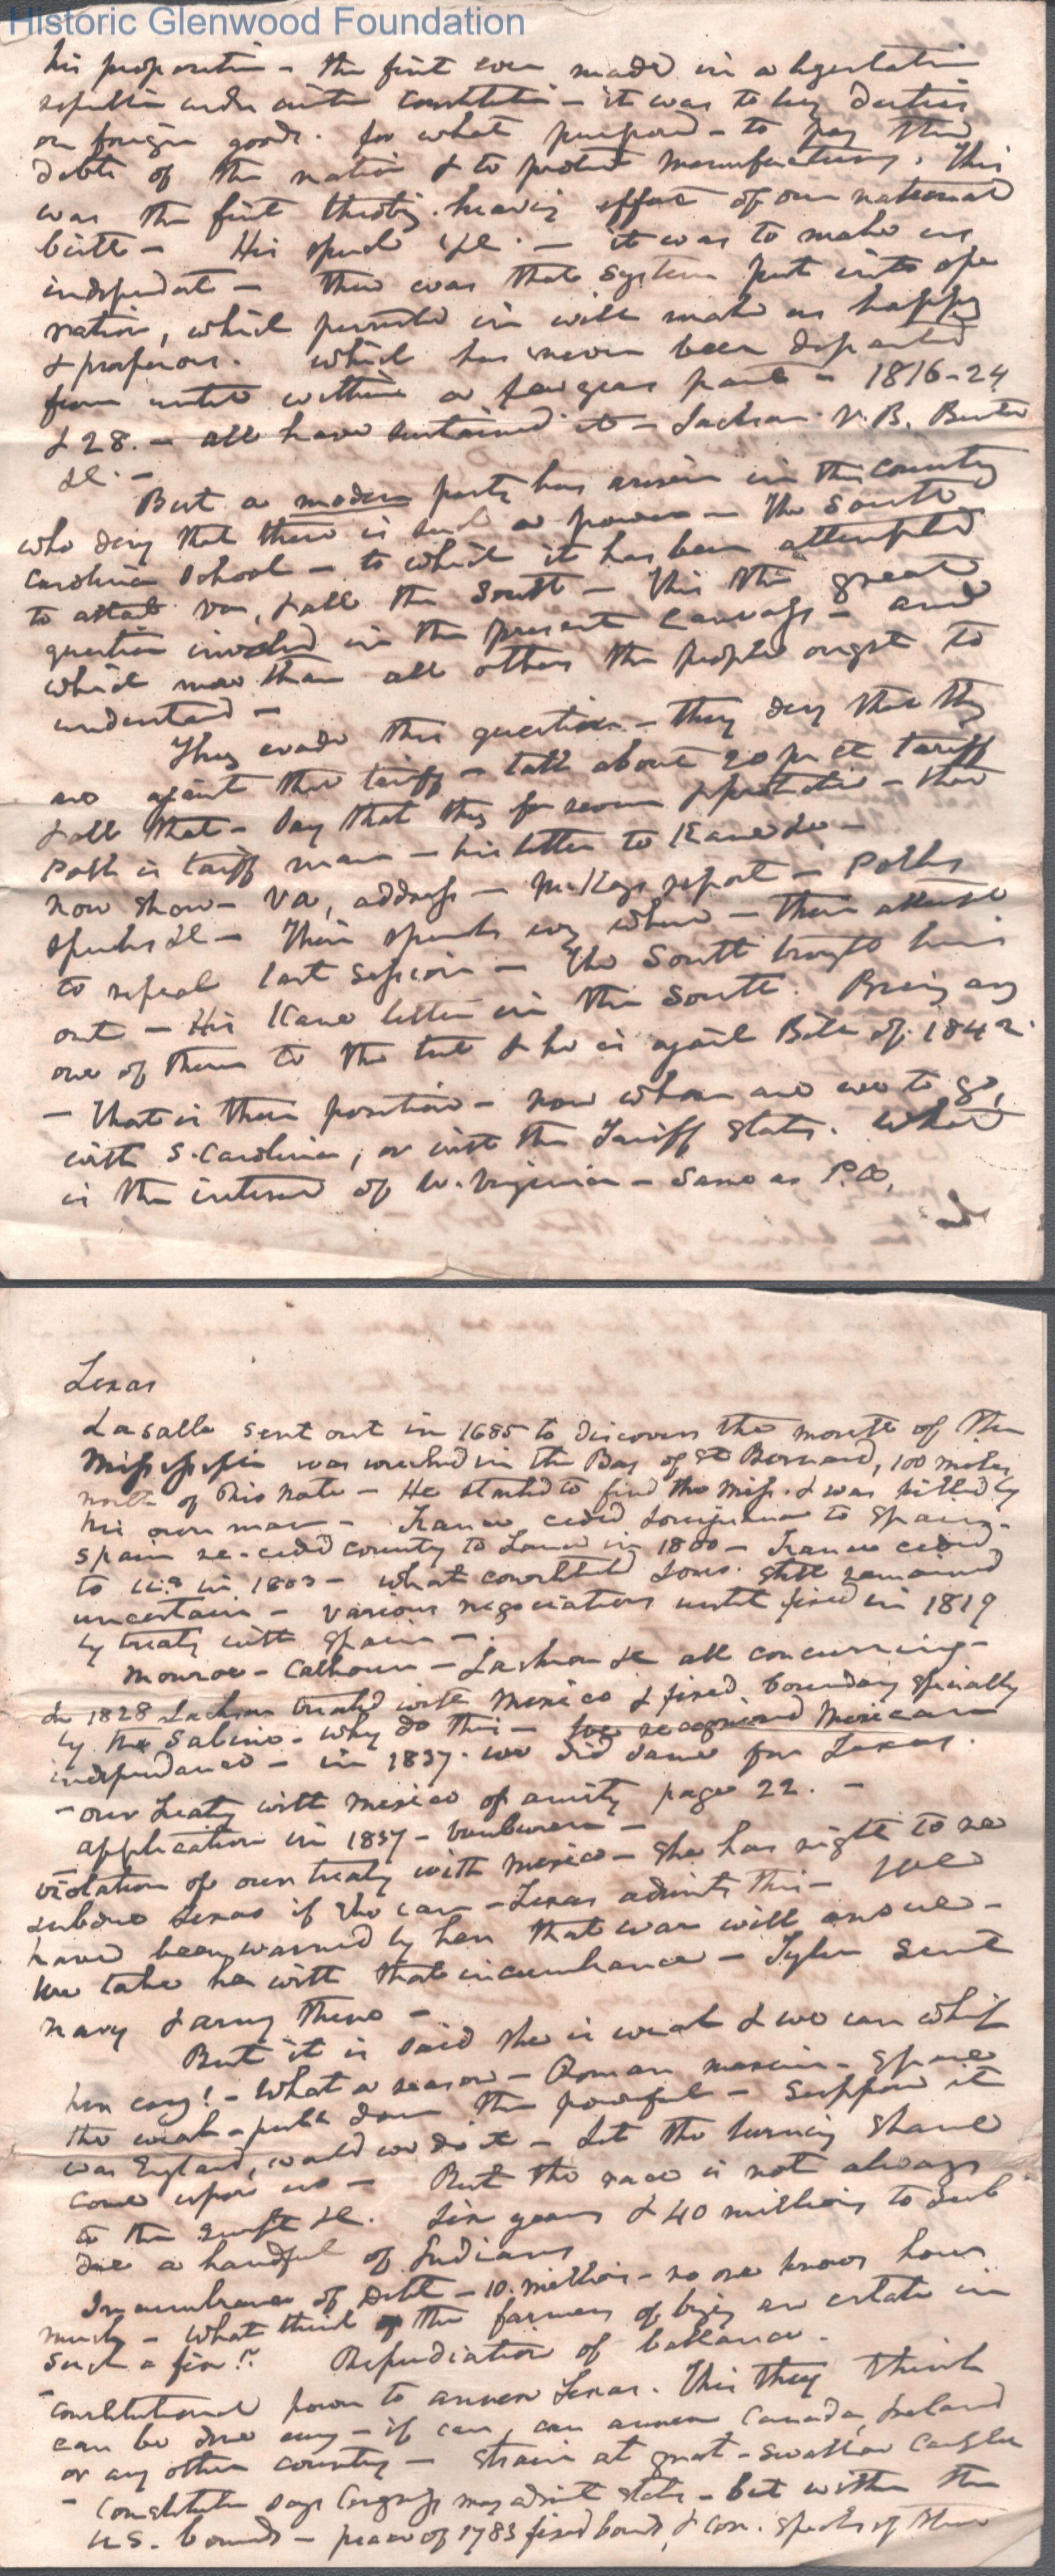 Historic Glenwood Foundation
his proposition - the first ever made in a legislative
under constitution - it was to lay duties
on foreign goods. for what purpose - to pay the
debts of the nation & to protect manufactures. This
was the first heaving effort of our national
birth - His speech &c. - it was to make us
independent - there was that system put into ope
ration, which persisted in will make us happy
& prosperous. which has never been departed
from until within a few years past - 1816-24
& 28. - all have sustained it - Jackson V.B. Benton
&c. -
But a modern party has arisen in this country
who deny that there is such a power - the South
Carolina School - to which it has been attempted
to attach Va, & all the South - This the great
question involved in the present Canvass - and
which more than all others the people ought to
understand -
They evade this question - they deny that they
are against the tariff - talk about 20 pr ct tariff
& all that - Say that they for revenue & protection - that
Polk is tariff man - his letter to Kane &c -
now show - Va, address - McKays report - Polks
speeches &c - Their speeches every where - their attempt
to repeal last Session - The South brought him
out - His Kane letter in the South. Bring any
one of them to the test & he is against Bill of 1842.
- That is their position - now whom are we to go,
with S. Carolina, or with the Tariff States. What
is the interest of W. Virginia - Same as Pa,
Texas
Lasalle sent out in 1685 to discover the mouth of the
Mississippi was wrecked in the Bay of St Bernard, 100 miles
north of Rio Norte - He started to find the Miss. & was killed by
his own men - France ceded Louisiana to Spain -
Spain re-ceded country to France in 1800 - France ceded
to U.S in 1803 - what constituted Loui. still remained
uncertain - various negociations until fixed in 1819
by treaty with Spain -
Monroe - Calhoun - Jackson &c all concurring -
In 1828 Jackson treated with Mexico & fixed boundary specially
by the Sabine - Why do this - We recognised Mexican
independance - in 1837. we did same for Texas.
- our treaty with Mexico of amity page 22. -
application in 1837 - Vanburen -
violation of our treaty with Mexico - She has right to re
subdue Texas if she can - Texas admits this - We
have been warned by her that war will ensue -
We take her with that incumbrance - Tyler sent
navy & army there -
But it is said she is weak & we can whip
her easy! - What a reason - Roman maxim - Spare
the weak - pull down the powerful - Suppose it
was England, would we do it - Let the burning shame
come upon us - But the race is not always
to the swift &c. Six years & 40 millions to sub
due a handful of Indians
Incumbrance of Debt - 10. millions - no one knows how
much - What think the farmers of buying an estate in
such a fix!. Repudiation of ballance -
- Constitutional power to annex Texas. This they think
can be done easy - if can, can annex Canada, Ireland
or any other country - Strain at gnat - swallow
- Constitution says Congress may admit states - but within the
U.S. bounds - peace of 1783 fixed bounds & Con. speaks of them